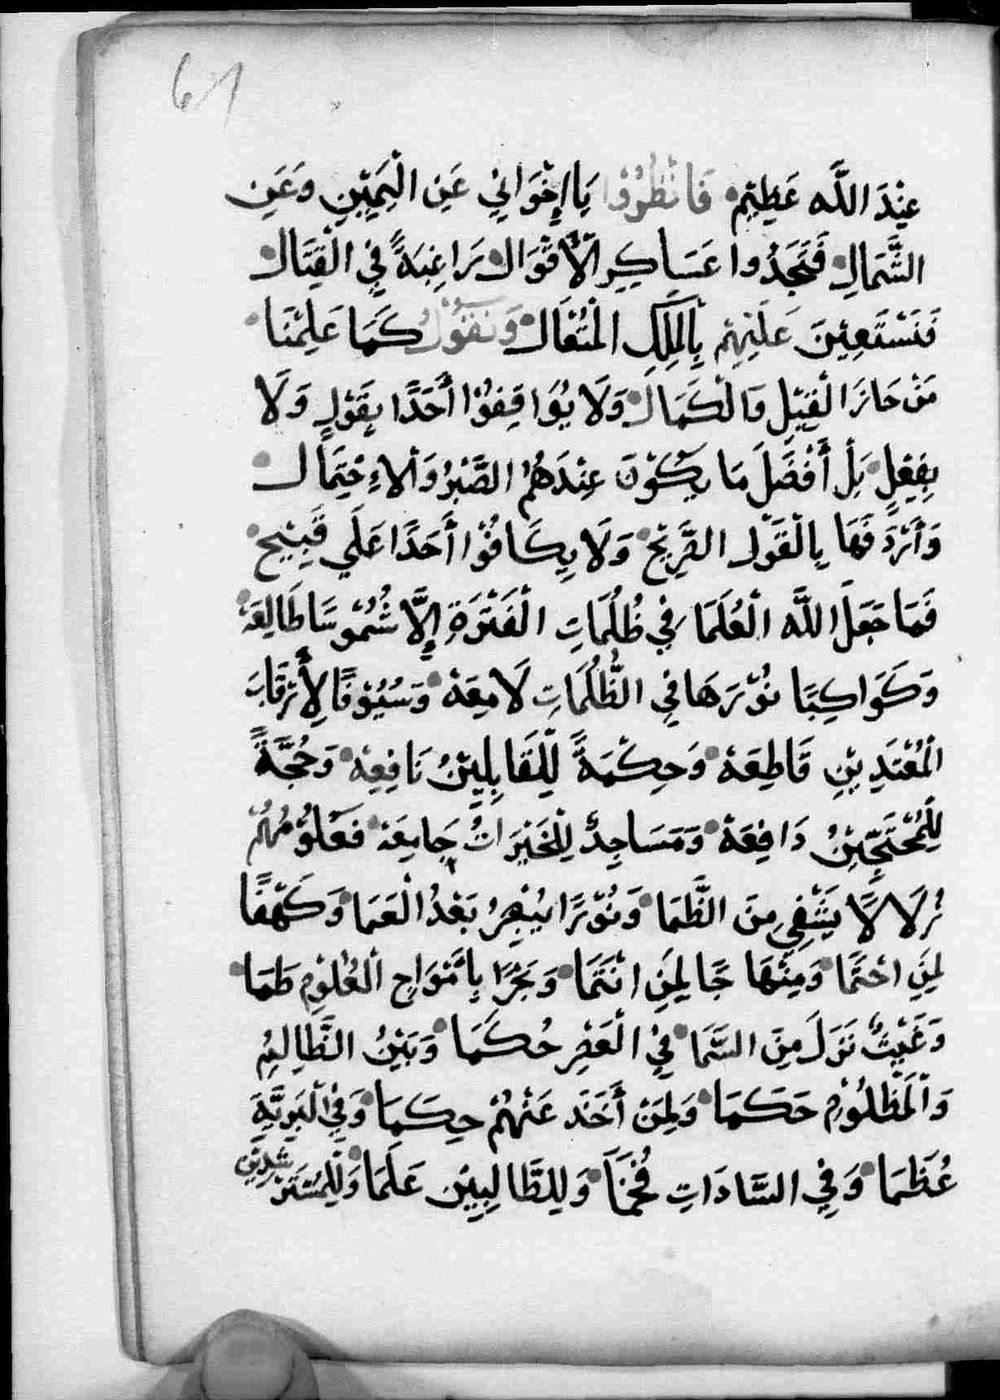 61
عِنْدَ اللَّه عَظِيْم فَانْظُرُوْا يَا إِخْوَانِيْ عَنِ الْيَمِيْنِ وَعَنِ
الشَّمَالِ فَتَجَدُوا عَسَاكِرِ الْأَقْوَال رَاغِبَةً فِي الْقِتَال
فَنَسْتَعِيْنَ عَلَيْهِمْ بِالْمَلِكِ الْمُتْعَال وَنَقُوْلُ كَمَا عَلِمْنَا
مَنْ حَازَ الْفَضِلِ وَالْكَمَال وَلَا يُوَاقِفُوْا أَحَدًا بِقَوْلٍ وَلَا
بِفِعْلٍ بَلْ أَفْضَلَ مَا يَكُوْنَ عِنْدَهُمُ الصَّبْرُ وَالاءِحْتِمَال
وَأَرْدَفَهَا بِالْقَوْل الصَّرِيْحْ وَلَا يِكَافُوْا أَحَدًا عَلَي قَبِيْحٍ
فَمَا جَعَلَ اللَّه الْعُلَمَا فِي ظُلُمَاتِ الْفَتْرَةِ إِلَّا شُمُوسًا طَالِعَة
وَكَوَاكِبًا نُوْرَهَا فِي الظُّلُمَاتِ لَامِعَة وَسُيُوْفًا لِأَرْقَابَ
الْمُعْتَدِيْنِ قَاطِعَة وَحِكْمَةً لِلْقَابِلِيْنَ نَافِعِة وَحُجَّةً
لِلْمُحْتَجِّيْنَ دَافِعَة وَمَسَاجِدٌ لِلْخَيْرَاتُ جَامِعَة فَعُلُوْمُهُمْ
زُلَالًا يَشْفِي مِنَ الظَّمَا وَنُوْرًا يُبْصِرُ بَعْدُ الْعَمَا وَكَهْفًا
لِمَنِ احْتَمَا وَمِنْهَا جًا لِمَنِ انْتَمَا وَبَحْرًا بِأَمْوَاجِ الْعُلُوْمِ طَمَا
وَغَيْثٌ نَزَلَ مِنَ السَّمَا فِيْ الْعَصْرِ حُكَمَا وَبَيْنَ الظَّالِمِ
وَالْمَظْلُوْمِ حَكَمَا وَلِمَنْ أَخَذ عَنْهُمْ حِكَمَا وَفِي الْبَرِيَّةِ
عُظَمَا وَفِي السَّادَاتِ فُخَمَا وَلِلطَّالِبِيْنَ عَلَمَا وَلِلْمُسْتَرْشِدِيْنَ